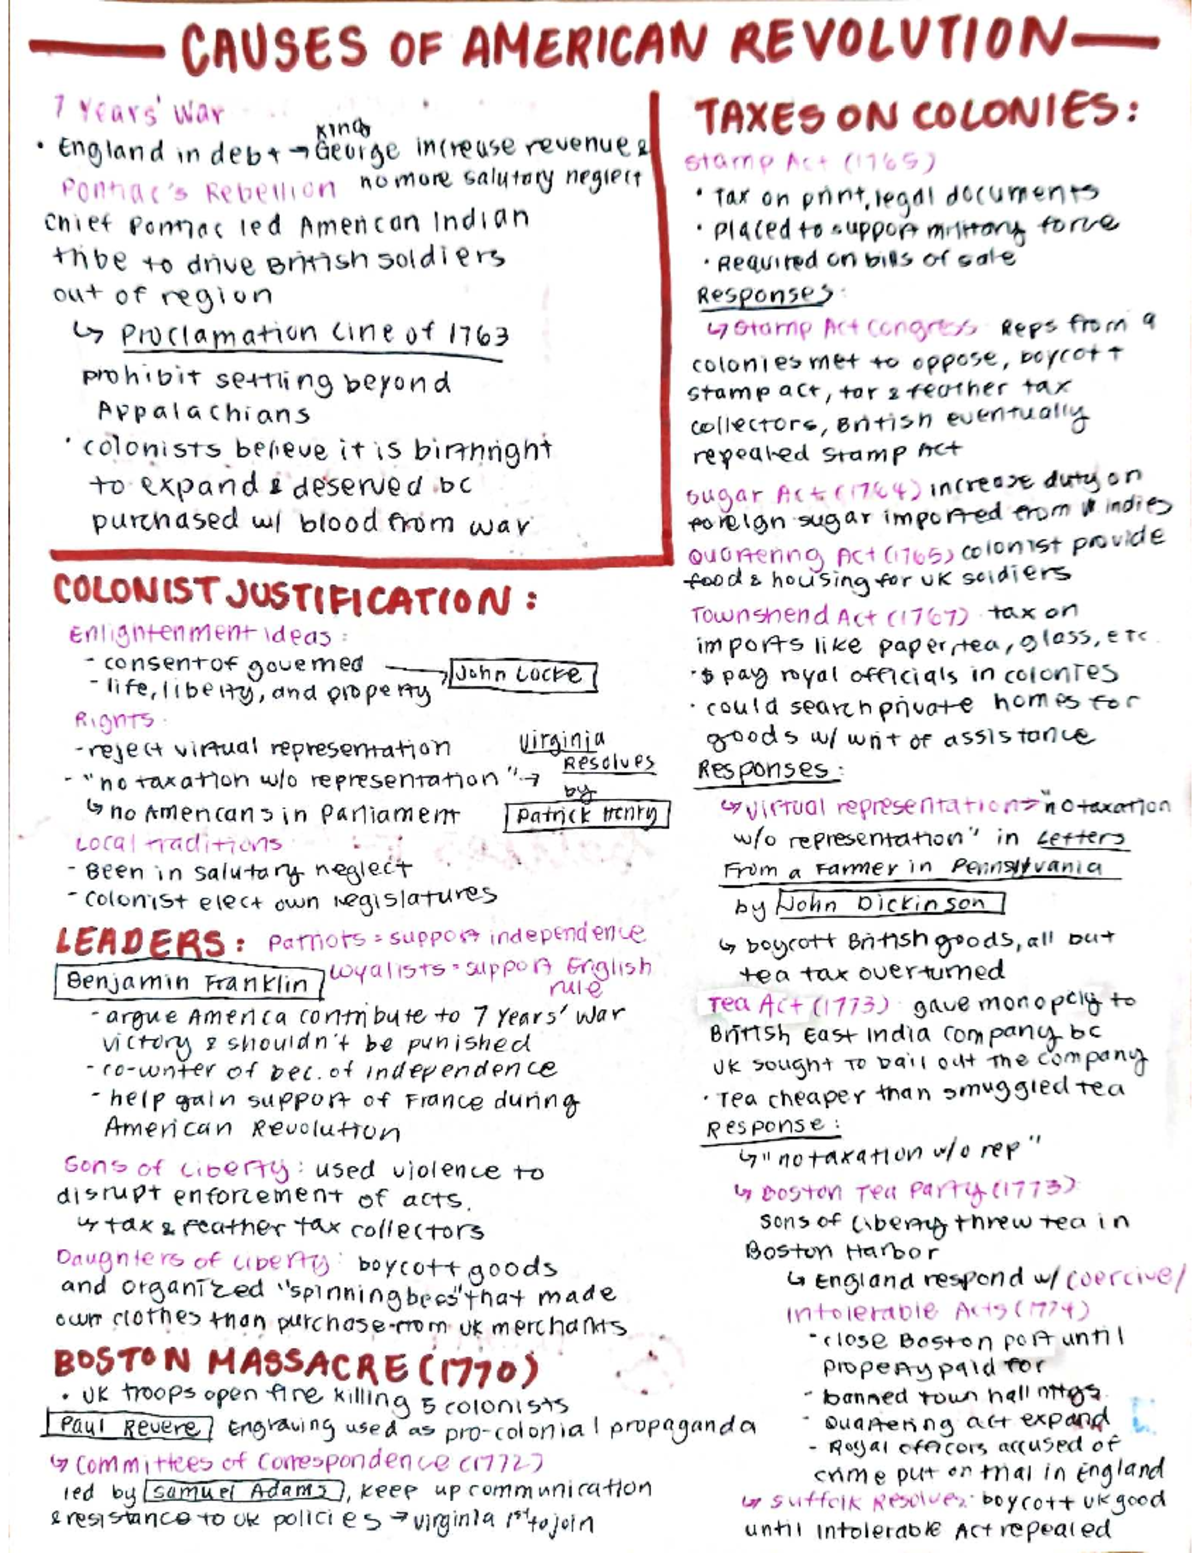 CAUSES OF AMERICAN REVOLUTION
7 Years' War
• England in debt → King George increase revenue &
no more salutory neglect
Pontiac's Rebellion
Chief Pontiac led American Indian
tribe to drive British soldiers
out of region
↳ Proclamation Line of 1763
prohibit settling beyond
Appalachians
• colonists believe it is birthright
to expand & deserved bc
purchased w/ blood from war
COLONIST JUSTIFICATION:
Enlightenment ideas:
- consent of governed
- life, liberty, and property → John Locke
Rights:
- reject virtual representation
- "no taxation w/o representation" → Virginia Resolves by Patrick Henry
↳ no Americans in Parliament
Local traditions
- Been in salutary neglect
- Colonist elect own legislatures
LEADERS: Patriots = support independence
Loyalists = support English rule
Benjamin Franklin
- argue America contribute to 7 Years' War
victory & shouldn't be punished
- co-writer of Dec. of Independence
- help gain support of France during
American Revolution
Sons of Liberty: used violence to
disrupt enforcement of acts.
↳ tax & feather tax collectors
Daughters of Liberty: boycott goods
and organized "spinning bees" that made
own clothes than purchase from UK merchants
BOSTON MASSACRE (1770)
• UK troops open fire killing 5 colonists
Paul Revere Engraving used as pro-colonial propaganda
↳ Committees of Correspondence (1772)
led by Samuel Adams, keep up communication
& resistance to UK policies → Virginia 1st to join
TAXES ON COLONIES:
Stamp Act (1765)
• Tax on print, legal documents
• Placed to support military force
• Required on bills of sale
Responses:
↳ Stamp Act Congress Reps from 9
colonies met to oppose, boycott
stamp act, tar & feather tax
collectors, British eventually
repealed Stamp Act
Sugar Act (1764) increase duty on
foreign sugar imported from W indies
Quartering Act (1765) colonist provide
food & housing for UK soldiers
Townshend Act (1767) tax on
imports like paper, tea, glass, etc.
• $ pay royal officials in colonies
• could search private homes for
goods w/ writ of assistance
Responses:
↳ Virtual representation → "no taxation
w/o representation" in Letters
From a Farmer in Pennsylvania
by John Dickinson
↳ boycott British goods, all but
tea tax overturned
Tea Act (1773) gave monopoly to
British East India Company bc
UK sought to bail out the company
• Tea cheaper than smuggled tea
Response:
↳ "no taxation w/o rep"
↳ Boston Tea Party (1773)
Sons of Liberty threw tea in
Boston Harbor
↳ England respond w/ Coercive/
Intolerable Acts (1774)
- close Boston port until
property paid for
- banned town hall mtgs
- Quartering act expand
- Royal officers accused of
crime put on trial in England
↳ Suffolk Resolves: boycott UK good
until Intolerable Act repealed